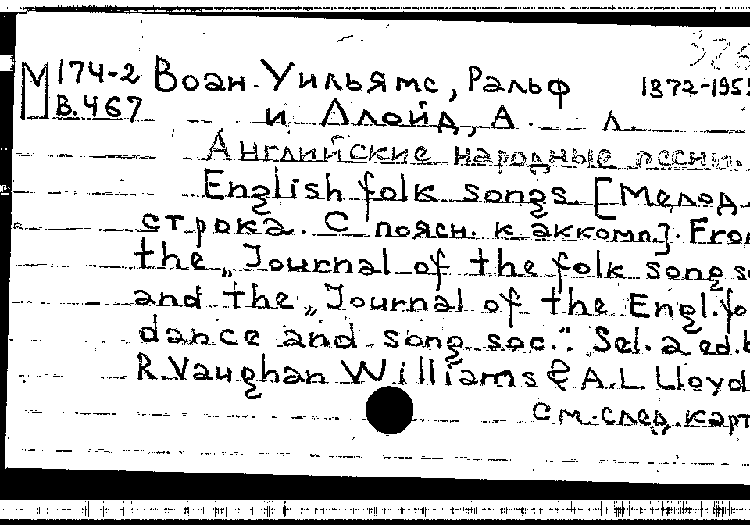 326
М 174-2 Воан-Уильямс, Ральф 1872-195
В.467 и Ллойд, А. Л.
Английские народные песни.
English folk songs [Мелод.
строка. С поясн. к аккомп.]. Fro
the „Journal of the folk song s
and the „Journal of the Engl. fo
dance and song soc.". Sel. a ed. b
R. Vaughan Williams & A.L. Lloyd
См. след. карт